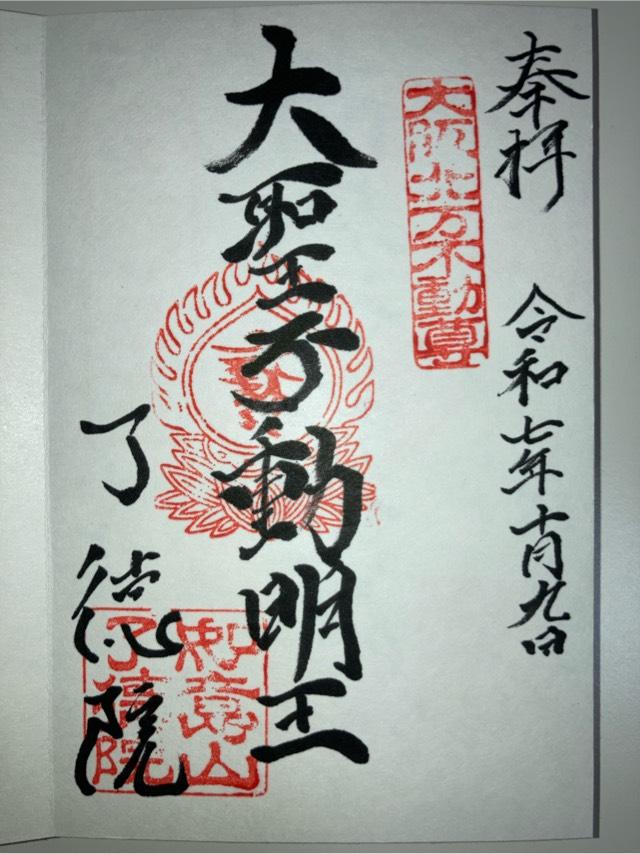 奉拝
令和七年十月九日
大阪北方不動尊
大聖不動明王
了徳院
如意山
了徳院